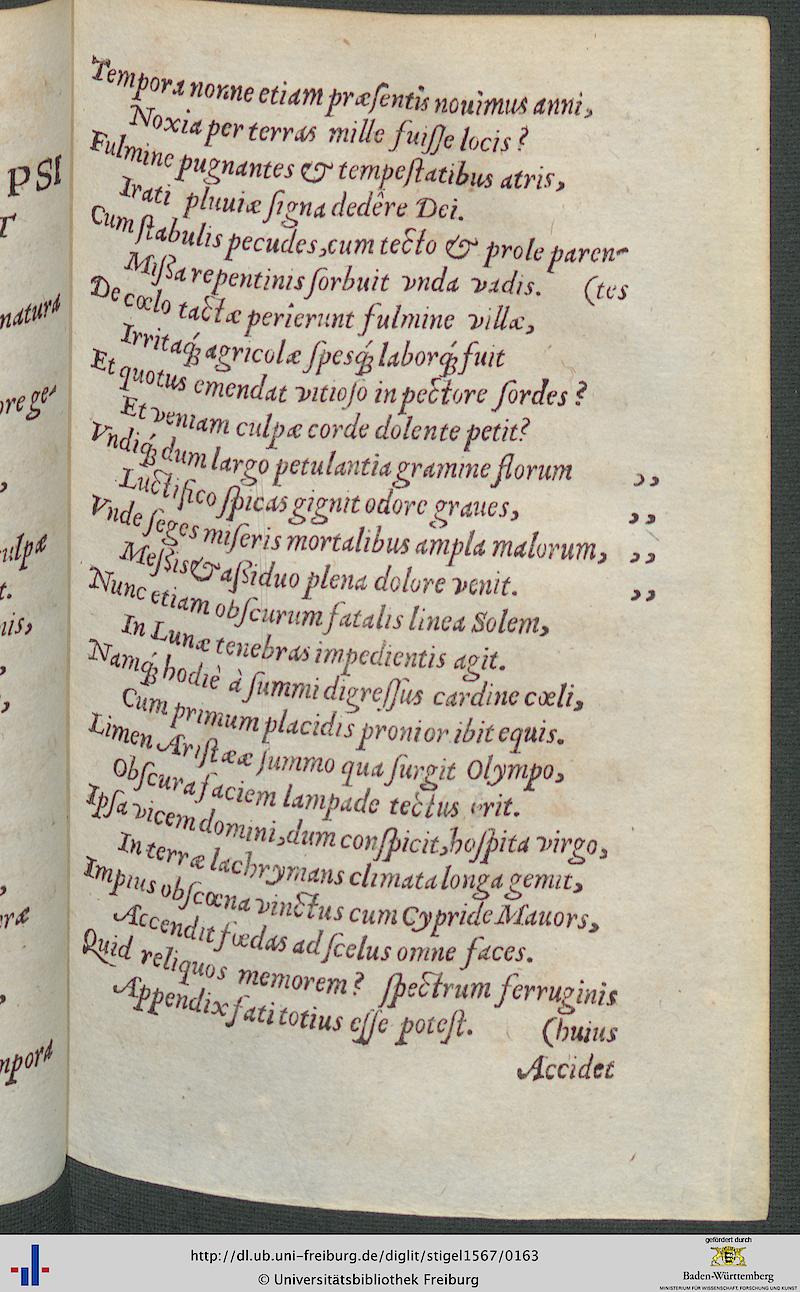 Tempora nonne etiam præſentis nouimus anni,
Noxia per terras mille fuiſſe locis?
Fulmine pugnantes & tempeſtatibus atris,
Irati pluuiæ ſigna dedêre Dei.
Cum ſtabulis pecudes, cum tecto & prole paren-
Miſſa repentinis ſorbuit vnda vadis. (tes
De cœlo tactæ perierunt fulmine villæ,
Irritaq́; agricolæ ſpesq́; laborq́; fuit
Et quotus emendat vitioſo in pectore ſordes?
Et veniam culpæ corde dolente petit?
Vndiq́; dum largo petulantia gramine florum ,,
Luctifico ſpicas gignit odore graues, ,,
Vnde ſeges miſeris mortalibus ampla malorum, ,,
Meſſis & aſſiduo plena dolore venit. ,,
Nunc etiam obſcurum fatalis linea Solem,
In Lunæ tenebras impedientis agit.
Namq́; hodiè à ſummi digreſſus cardine cœli,
Cum primum placidis pronior ibit equis.
Limen Ariſtææ ſummo qua ſurgit Olympo,
Obſcura faciem lampade tectus erit.
Ipſa vicem domini, dum conſpicit, hoſpita virgo,
In terræ lachrymans climata longa gemit,
Impius obſcœna vinctus cum Cypride Mauors,
Accendit fœdas ad ſcelus omne faces.
Quid reliquos memorem? ſpectrum ferruginis
Appendix fati totius eſſe poteſt. (huius
Accidet
PSI
T
natura
ore ge-
,
culpæ
t.
nis,
,
,
,
eræ
,
mpora
http://dl.ub.uni-freiburg.de/diglit/stigel1567/0163
© Universitätsbibliothek Freiburg
gefördert durch
Baden-Württemberg
MINISTERIUM FÜR WISSENSCHAFT, FORSCHUNG UND KUNST